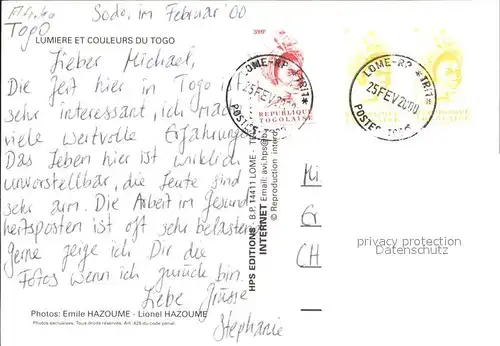 Afrika
Togo
Sodo, im Februar 00
LUMIERE ET COULEURS DU TOGO
Lieber Michael,
Die Zeit hier in Togo ist
sehr interessant, ich mache
viele wertvolle Erfahrungen
Das Leben hier ist wirklich
unvorstellbar, die Leute sind
sehr arm. Die Arbeit im Gesund
heitsposten ist oft sehr belastend
Gerne zeige ich Dir die
Fotos wenn ich zurück bin
Liebe Grüsse
Stephanie
Photos: Emile HAZOUME - Lionel HAZOUME
Photos exclusives. Tous droits réservés. Art. 425 du code pénal.
HPS EDITIONS - B.P. 14411 LOME - TO
INTERNET Email: avi.hps@
© Reproduction interd
REPUBLIQUE
TOGOLAISE
LOME-RP *TRI1*
25 FEV 2000
POSTES TOGO
LOME-RP *TRI1*
25 FEV 2000
POSTES TOGO
CH
privacy protection
Datenschutz